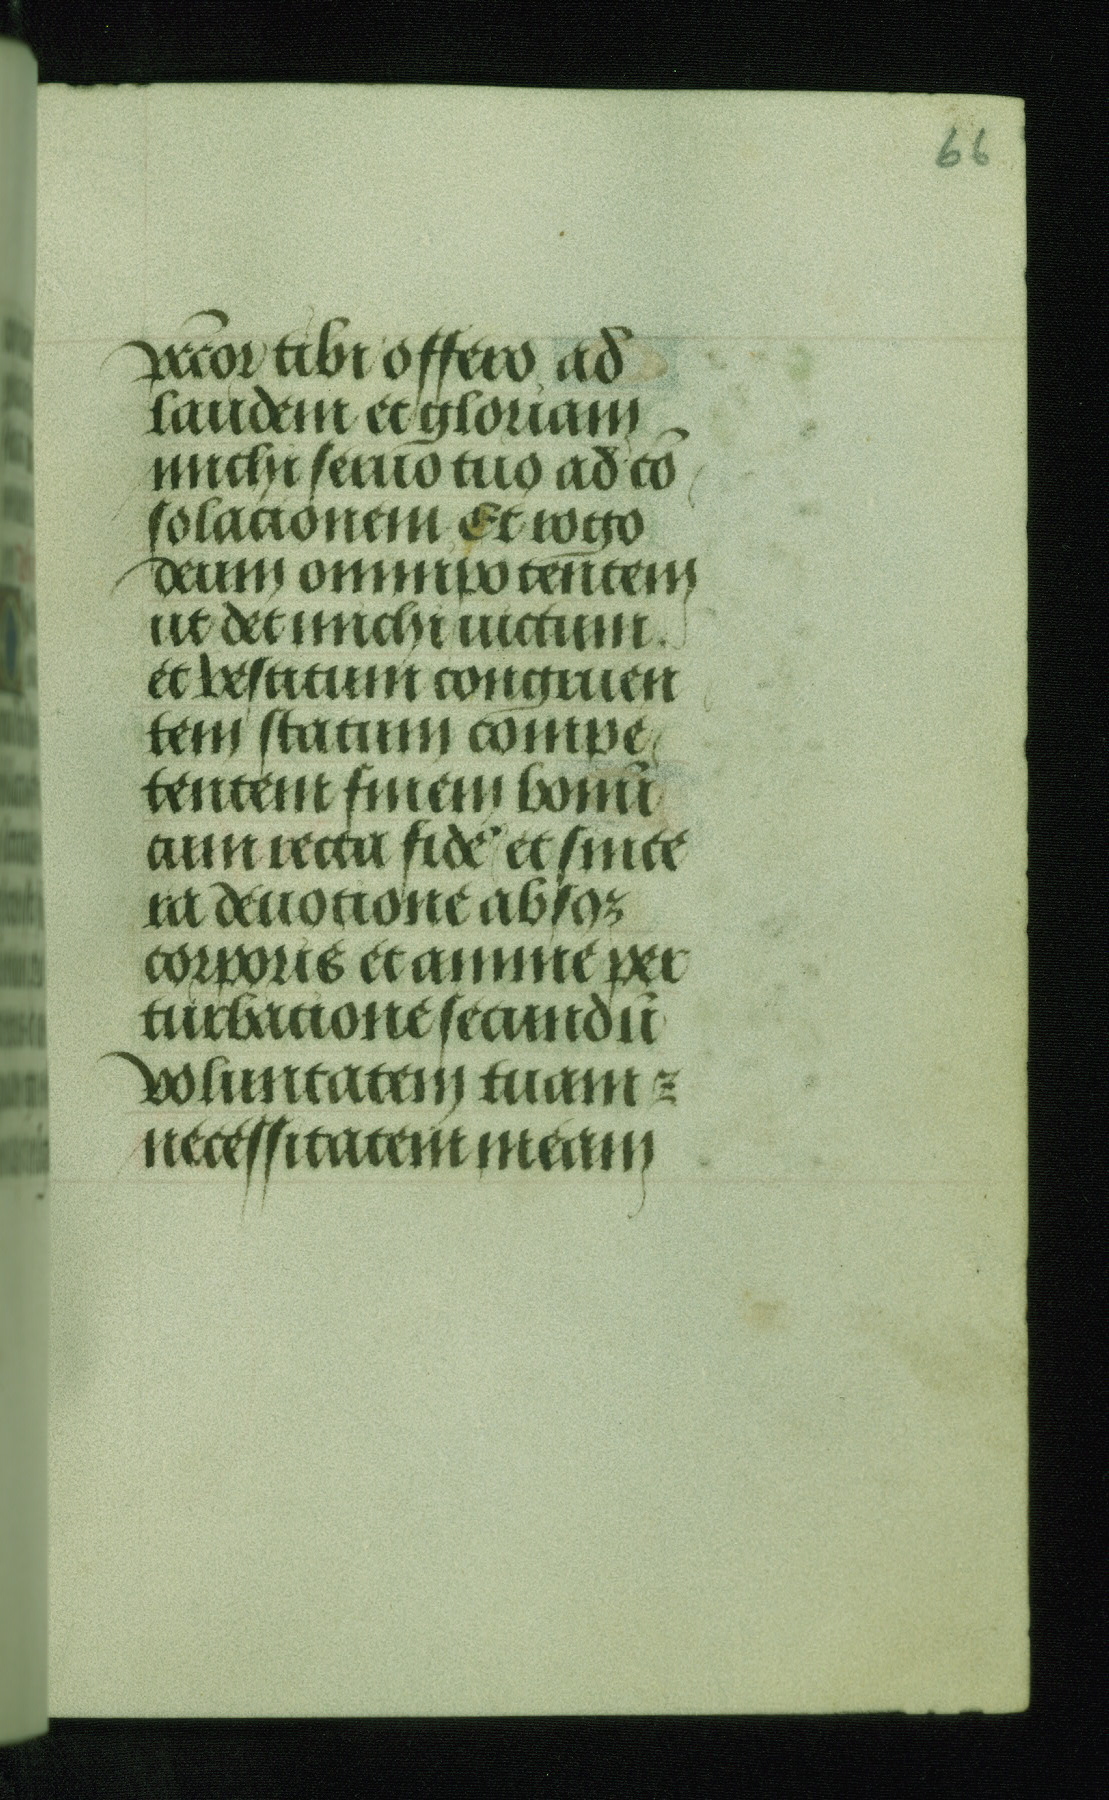 66
pctor tibi offero ad
laudem et gloriam
michi seruo tuo ad cō
solacionem Et rogo
deum omnipotentem
ut det michi uictum.
et vestitum congruen
tem statum compe
tentem finem bonū
cum recta fide et since
ra deuotione absqꝫ
corporis et anime per
turbacione secundū
voluntatem tuam ⁊
necessitatem meam